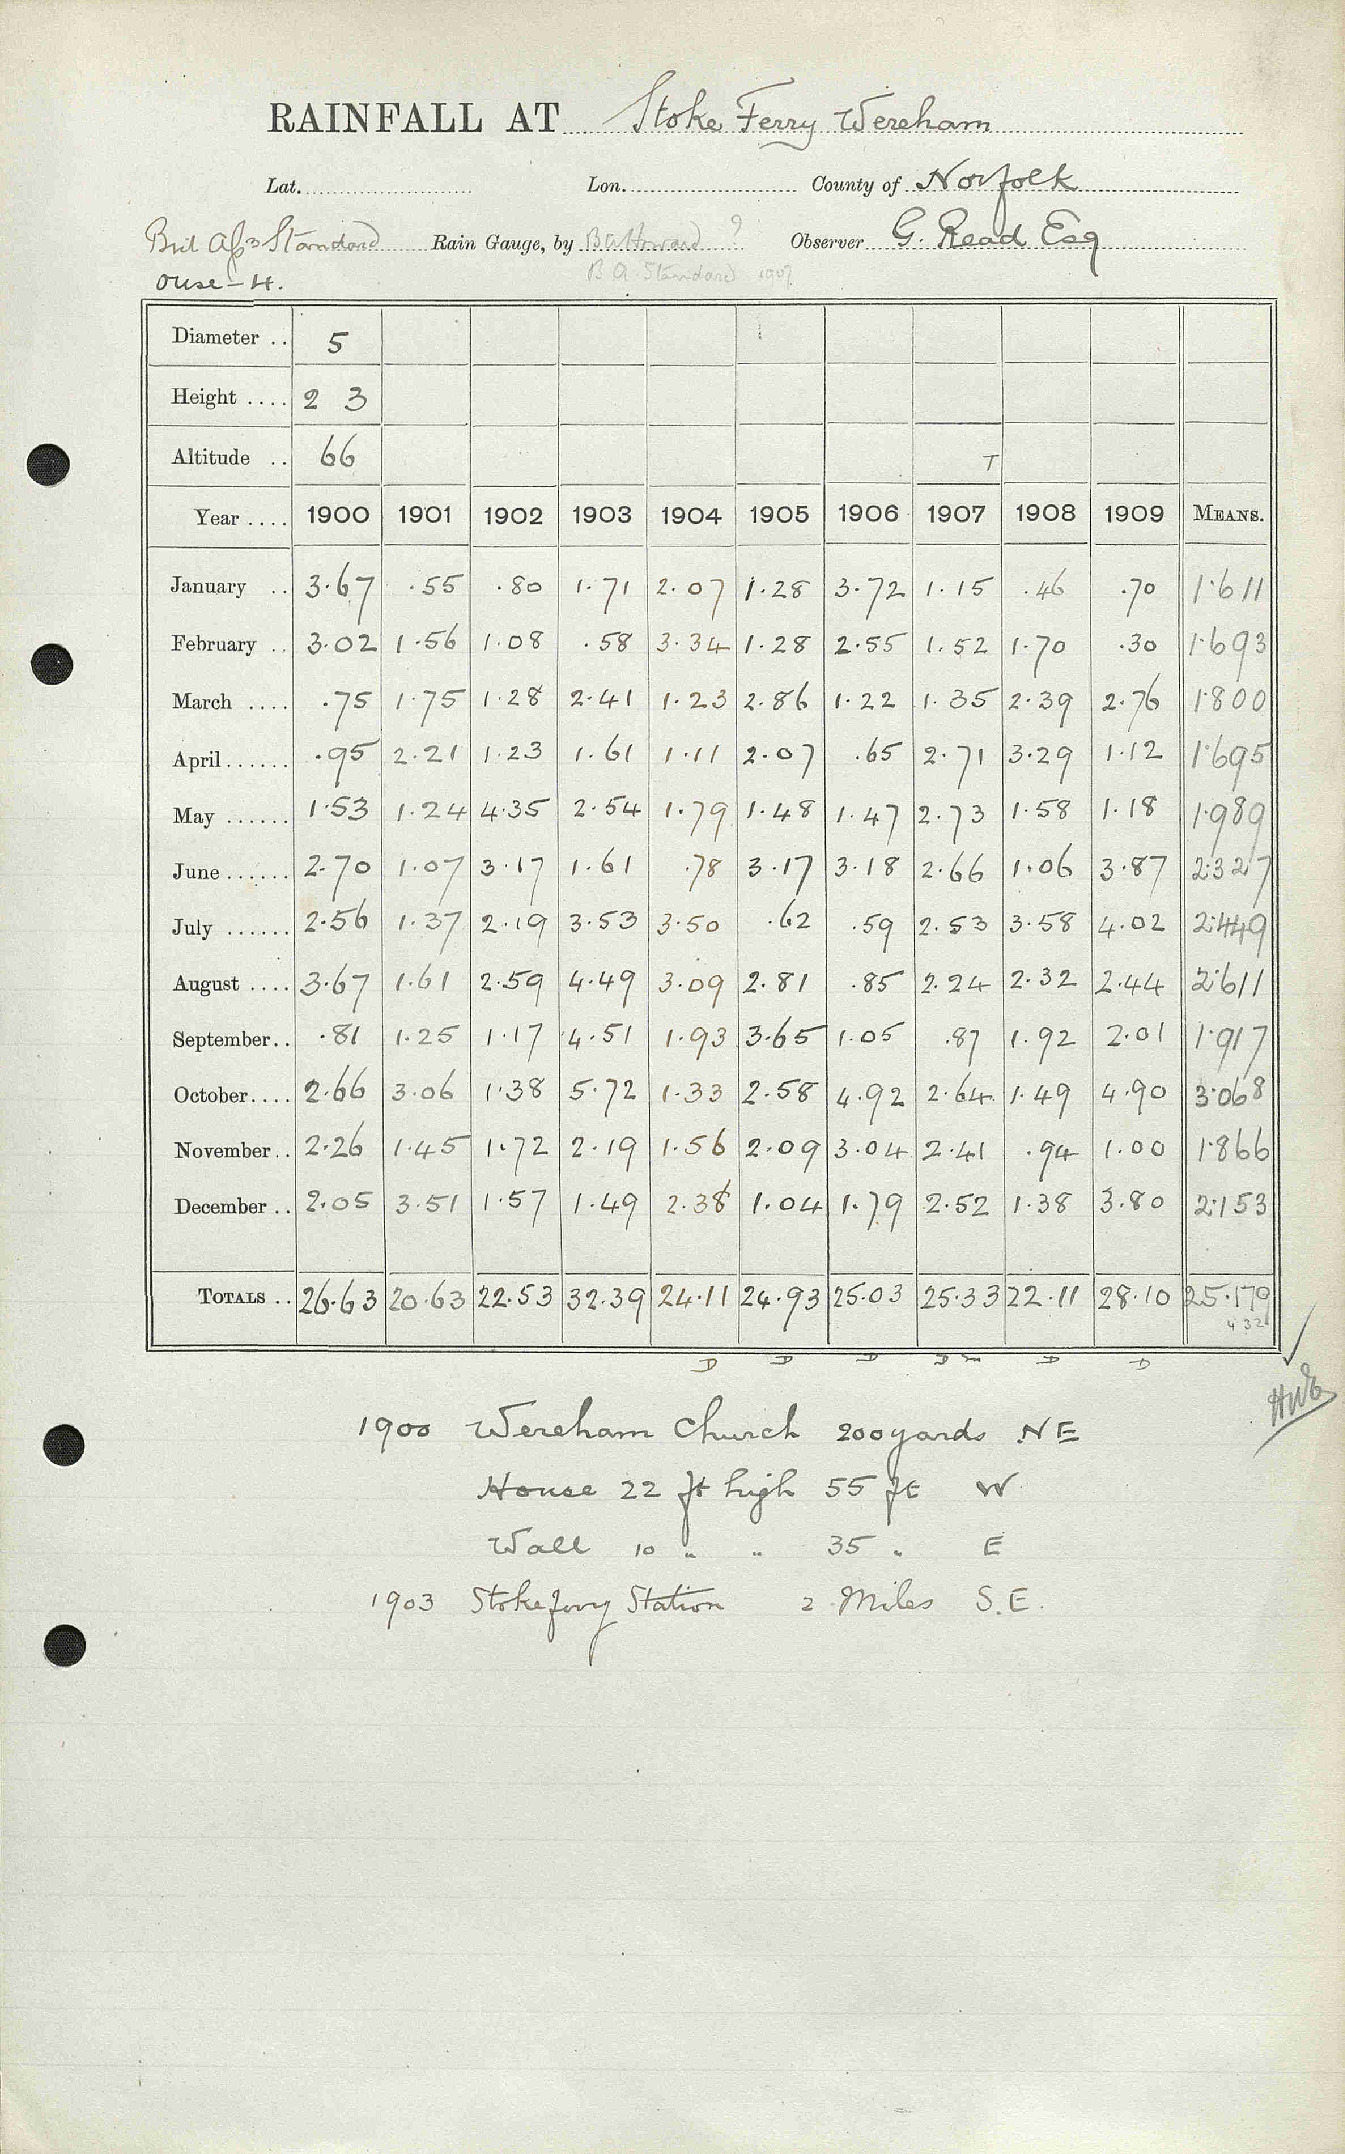 RAINFALL AT Stoke Ferry Wereham
Lat. Lon. County of Norfolk
Brit Assn Standard Rain Gauge, by Observer G. Read Esq
Ouse-4. B A Standard 1907
Diameter .. 5
Height .... 2 3
Altitude .. 66 T
Year .... 1900 1901 1902 1903 1904 1905 1906 1907 1908 1909 MEANS.
January .. 3.67 .55 .80 1.71 2.07 1.28 3.72 1.15 .46 .70 1.611
February .. 3.02 1.56 1.08 .58 3.34 1.28 2.55 1.52 1.70 .30 1.693
March .... .75 1.75 1.28 2.41 1.23 2.86 1.22 1.35 2.39 2.76 1.800
April ...... .95 2.21 1.23 1.61 1.11 2.07 .65 2.71 3.29 1.12 1.695
May ...... 1.53 1.24 4.35 2.54 1.79 1.48 1.47 2.73 1.58 1.18 1.989
June ...... 2.70 1.07 3.17 1.61 .78 3.17 3.18 2.66 1.06 3.87 2.327
July ...... 2.56 1.37 2.19 3.53 3.50 .62 .59 2.53 3.58 4.02 2.449
August .... 3.67 1.61 2.59 4.49 3.09 2.81 .85 2.24 2.32 2.44 2.611
September .. .81 1.25 1.17 4.51 1.93 3.65 1.05 .87 1.92 2.01 1.917
October .... 2.66 3.06 1.38 5.72 1.33 2.58 4.92 2.64 1.49 4.90 3.068
November .. 2.26 1.45 1.72 2.19 1.56 2.09 3.04 2.41 .94 1.00 1.866
December .. 2.05 3.51 1.57 1.49 2.38 1.04 1.79 2.52 1.38 3.80 2.153
TOTALS .. 26.63 20.63 22.53 32.39 24.11 24.93 25.03 25.33 22.11 28.10 25.179
432
D D D D D D
1900 Wereham Church 200 yards NE
House 22 ft high 55 ft W
Wall 10 " " 35 " E
1903 Stokeferry Station 2 Miles S.E.